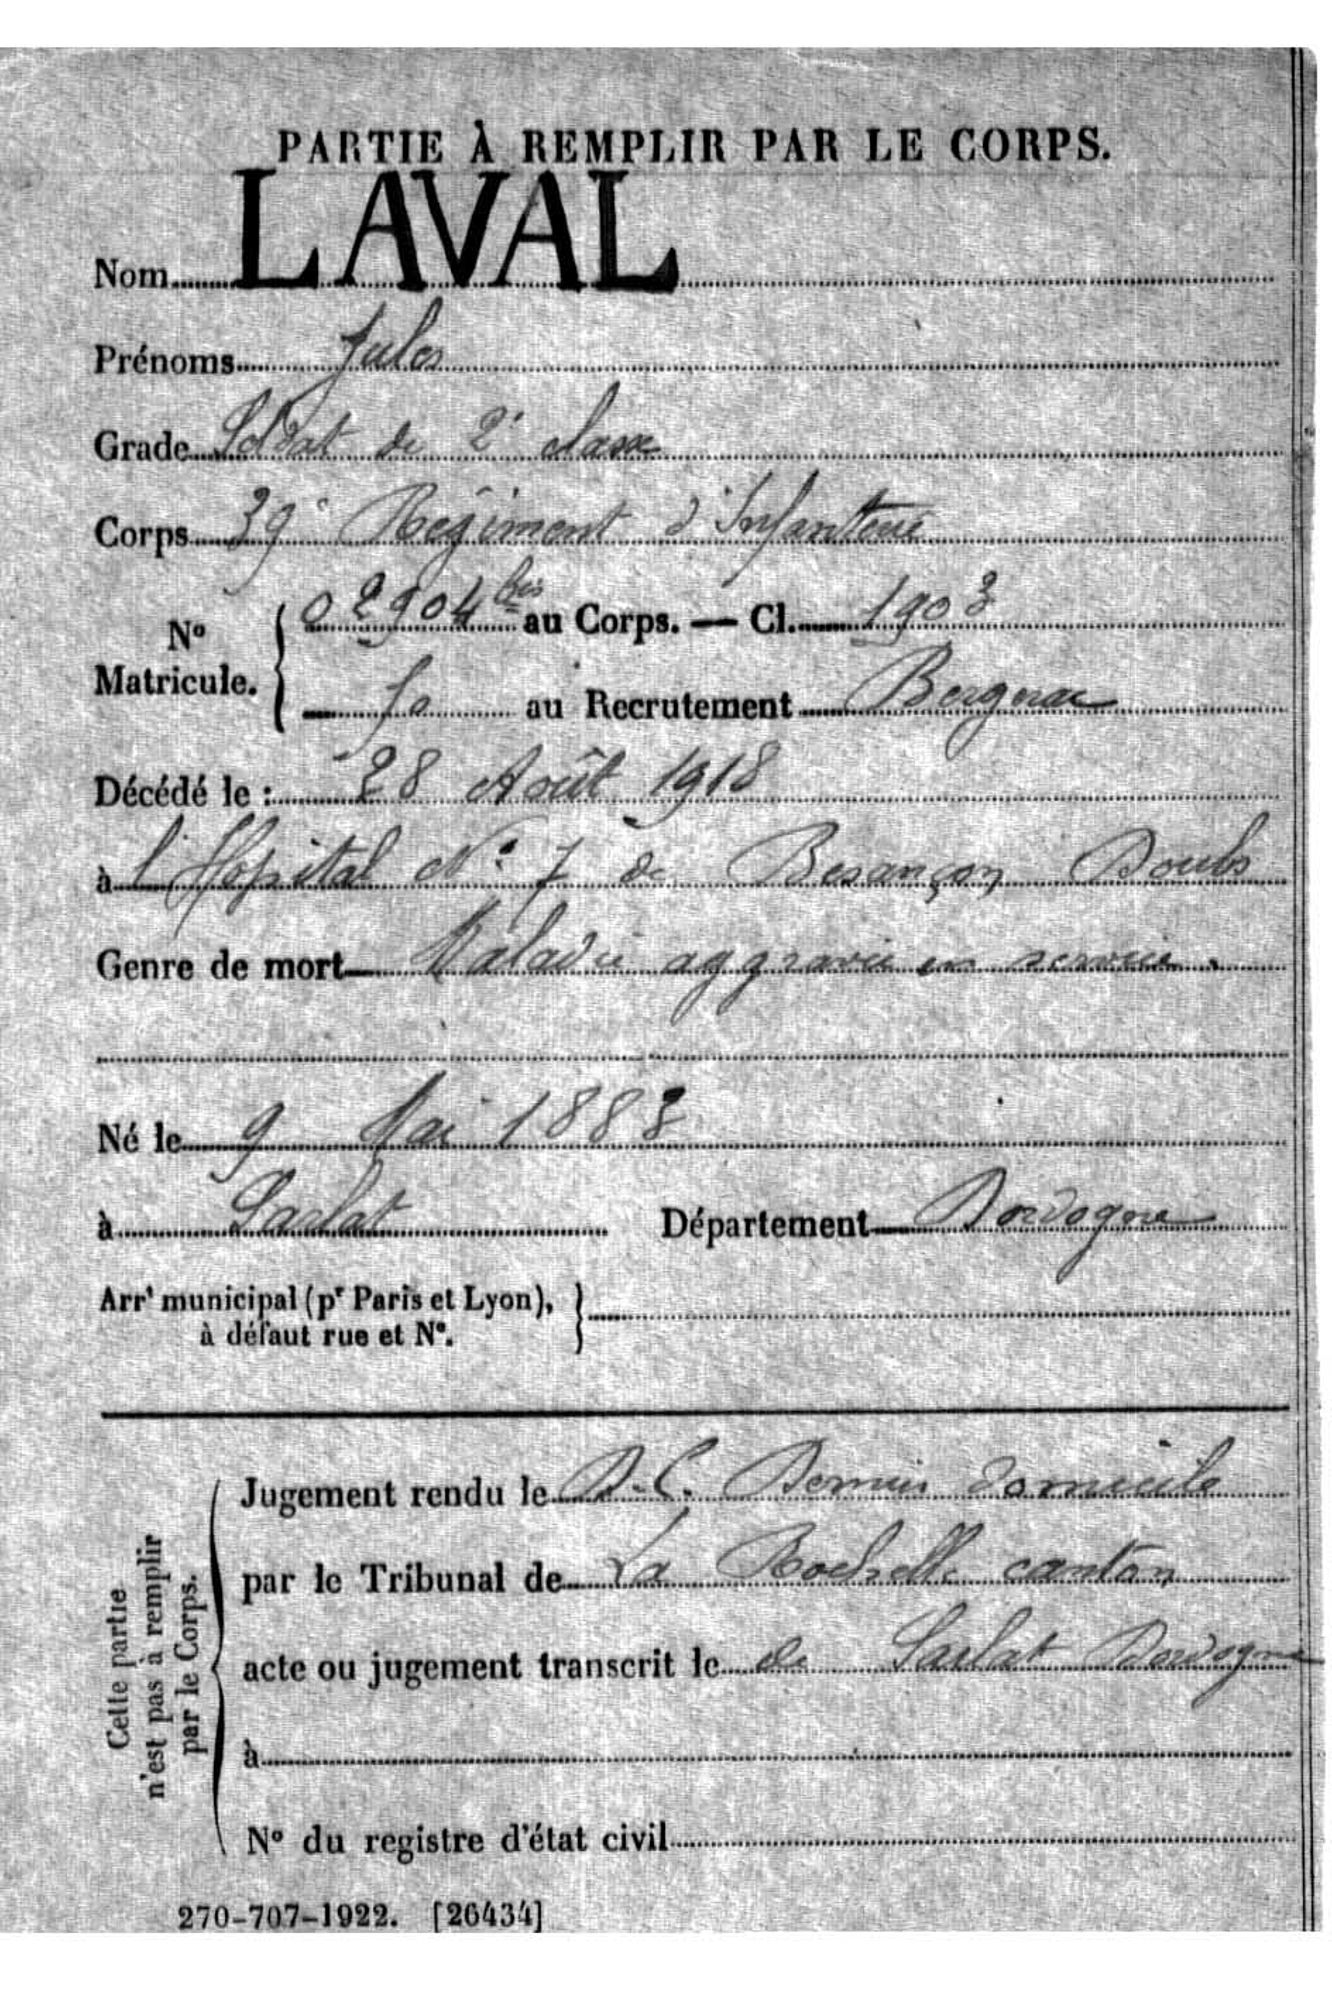 PARTIE À REMPLIR PAR LE CORPS.
Nom LAVAL
Prénoms Jules
Grade Soldat de 2e classe
Corps 39e Régiment d'Infanterie
No Matricule. { 02904 bis au Corps. — Cl. 1903
50 au Recrutement Bergerac
Décédé le : 28 Août 1918
à l'Hôpital No 7 de Besançon Doubs
Genre de mort Maladie aggravée en service.
Né le 9 Mai 1883
à Sarlat Département Dordogne
Arrt municipal (pr Paris et Lyon),
à défaut rue et No. }
Cette partie
n'est pas à remplir
par le Corps.
Jugement rendu le D.C. Dernier domicile
par le Tribunal de La Rochelle canton
acte ou jugement transcrit le de Sarlat Dordogne
à
No du registre d'état civil
270-707-1922. [26434]